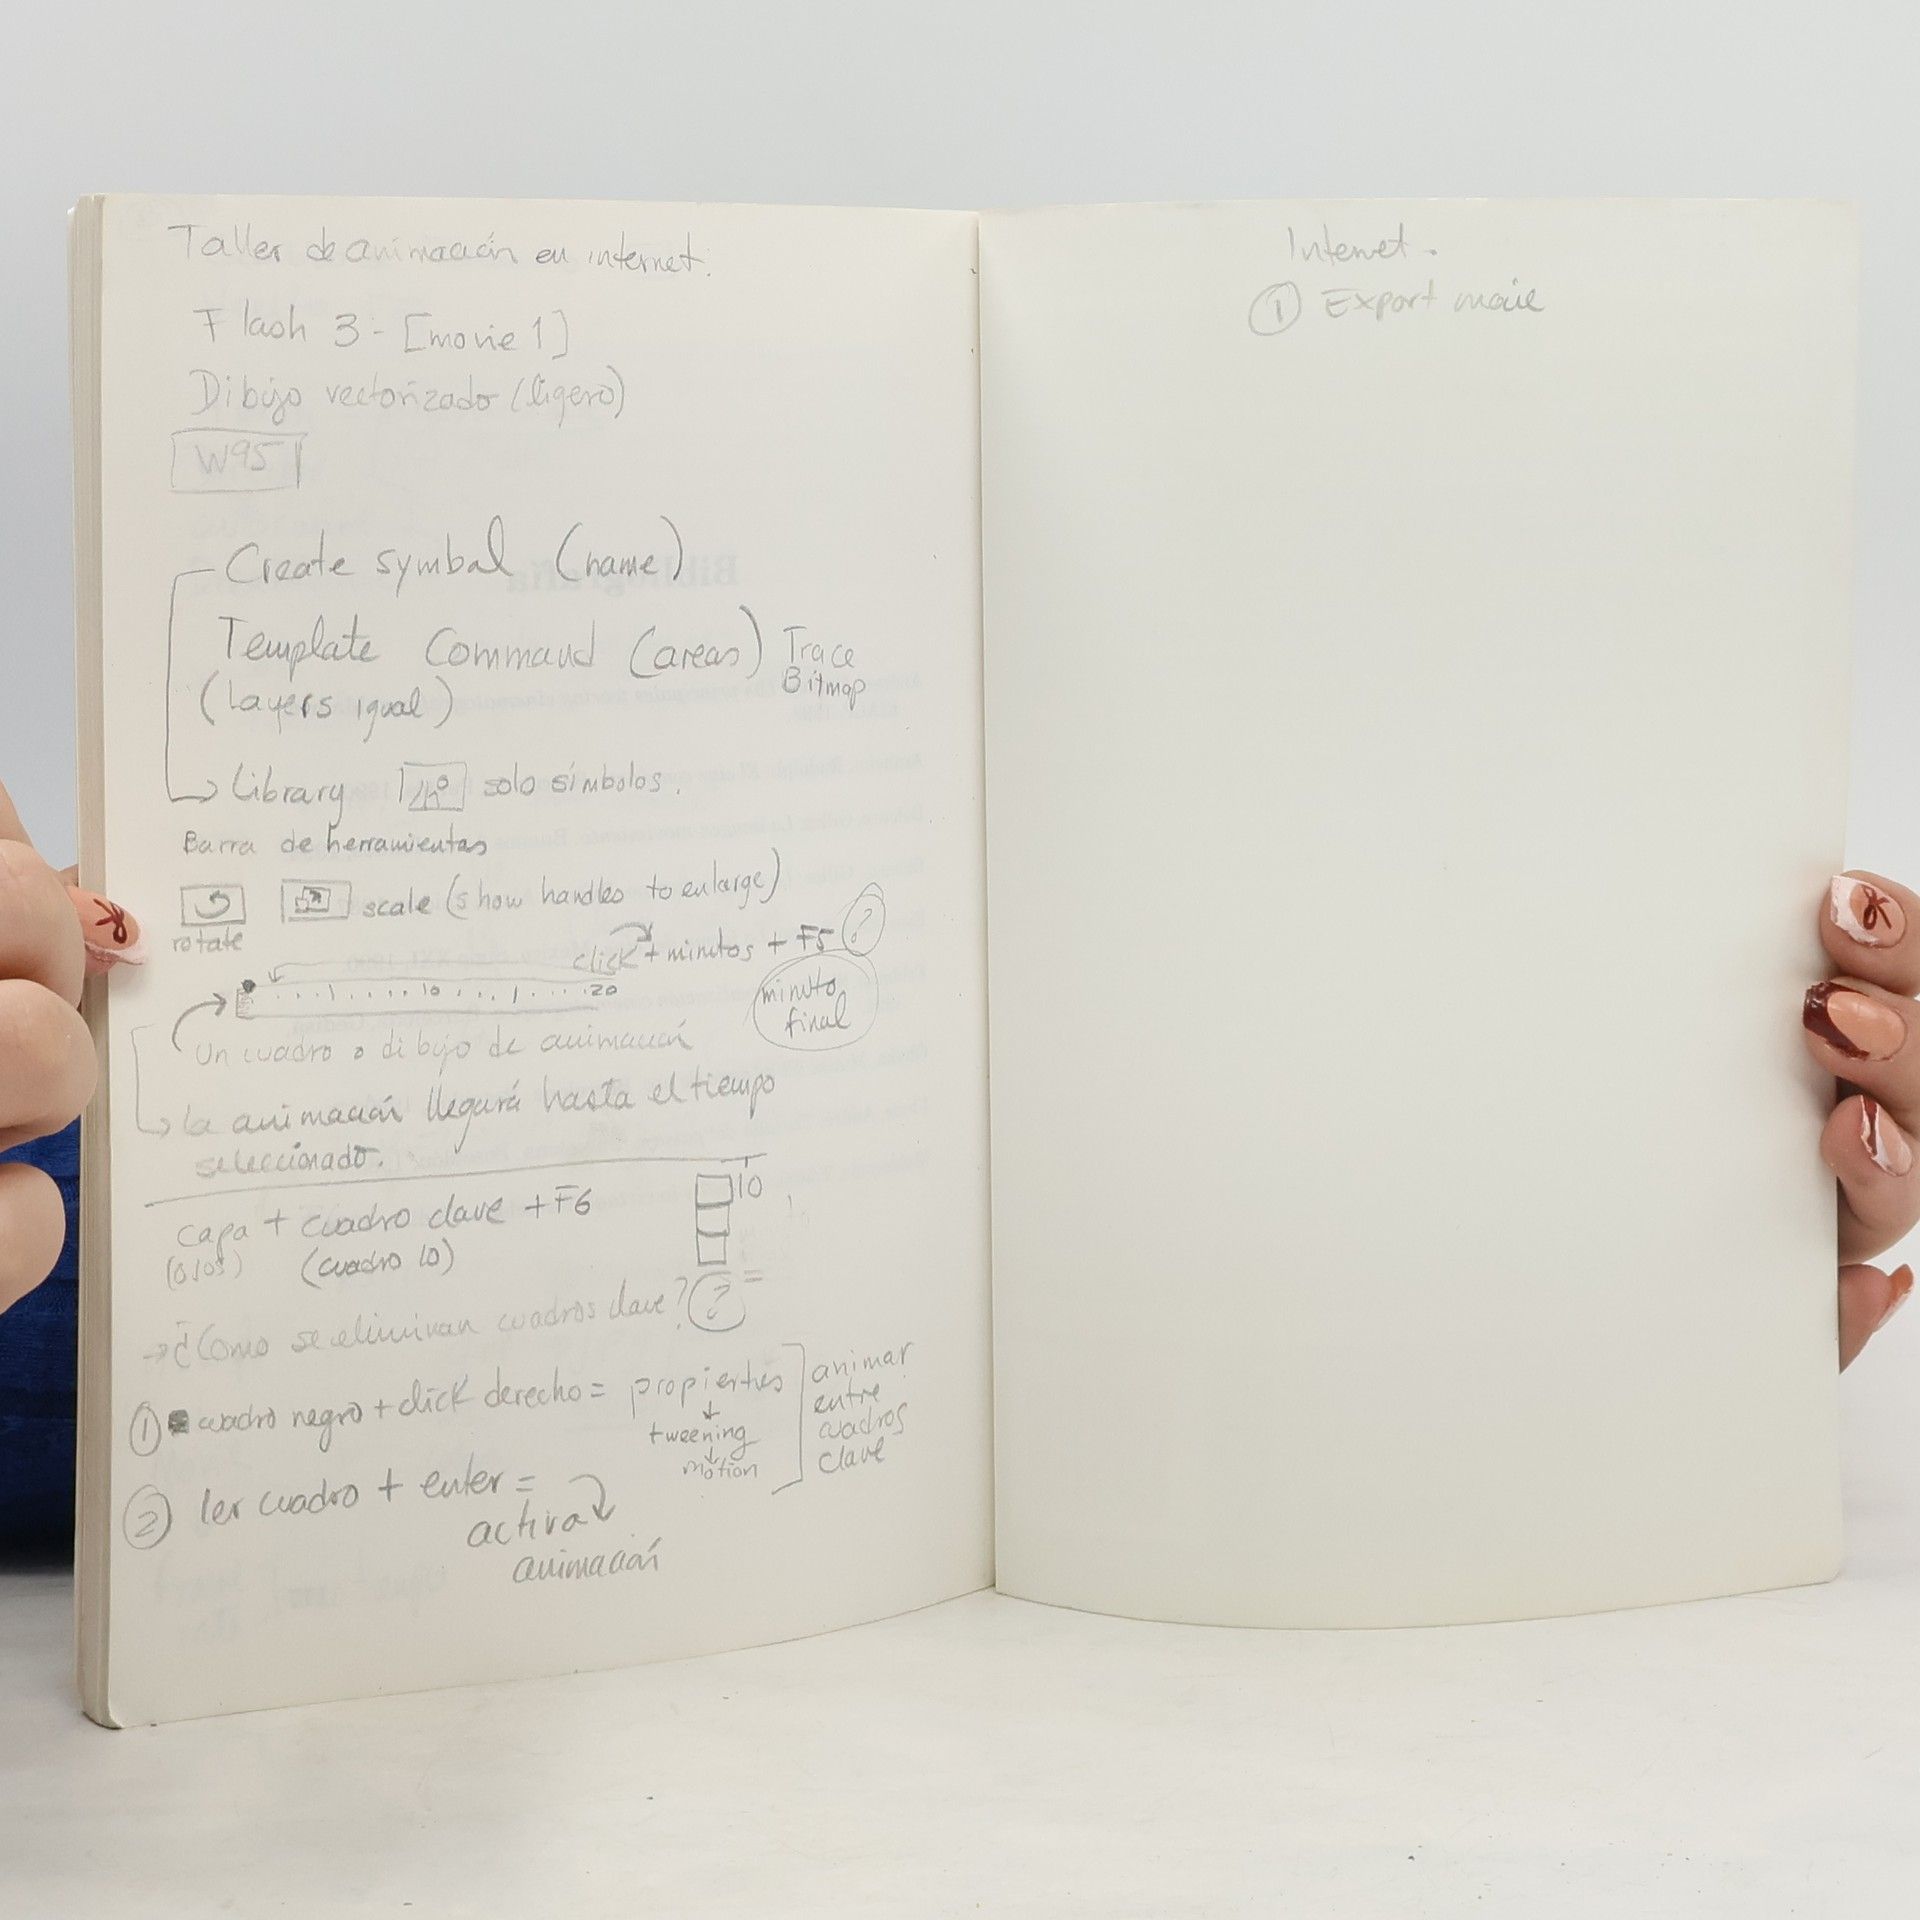 Taller de animación en internet.
Flash 3 - [movie 1]
Dibujo vectorizado (ligero)
W95
Create symbol (name)
Template Command (areas) Trace Bitmap
(layers igual)
Library solo símbolos.
Barra de herramientas
rotate
scale (show handles to enlarge)
click + minutos + F5 ?
minuto
final
10 20
Un cuadro o dibujo de animación
la animación llegará hasta el tiempo
seleccionado.
capa + cuadro clave + F6
(ojos) (cuadro 10)
10
→ ¿Como se eliminan cuadros clave? ?
=
① cuadro negro + click derecho = propierties
tweening
motion
animar
entre
cuadros
clave
② 1er cuadro + enter =
activa
animación
Internet.
① Export movie
Bibliografía